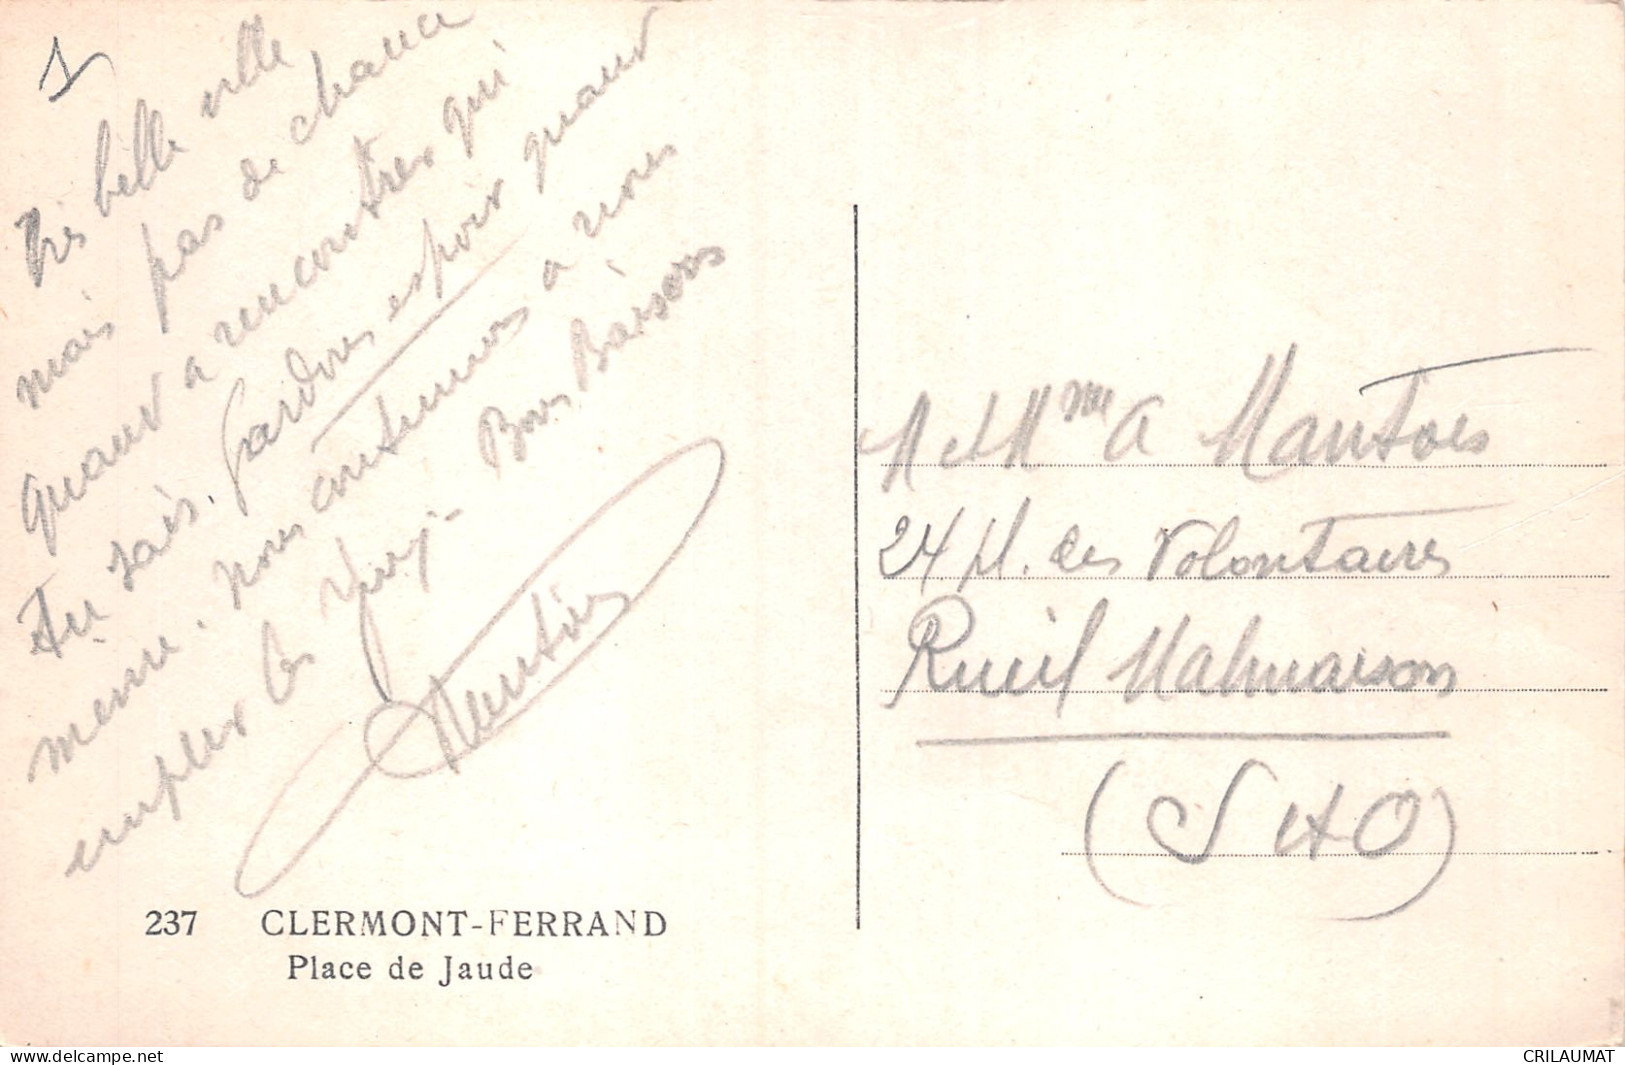 1
Très belle ville
mais pas de chance
quant a rencontres qui
tu sais. Gardons espoir quand
meme. nous continuons a nous
empiler les
Bons Baisers
Mantois
M et Mme A Mantois
24 pl. des Volontaires
Rueil Malmaison
(S et O)
237 CLERMONT-FERRAND
Place de Jaude
delcampe.net
CRILAUMAT